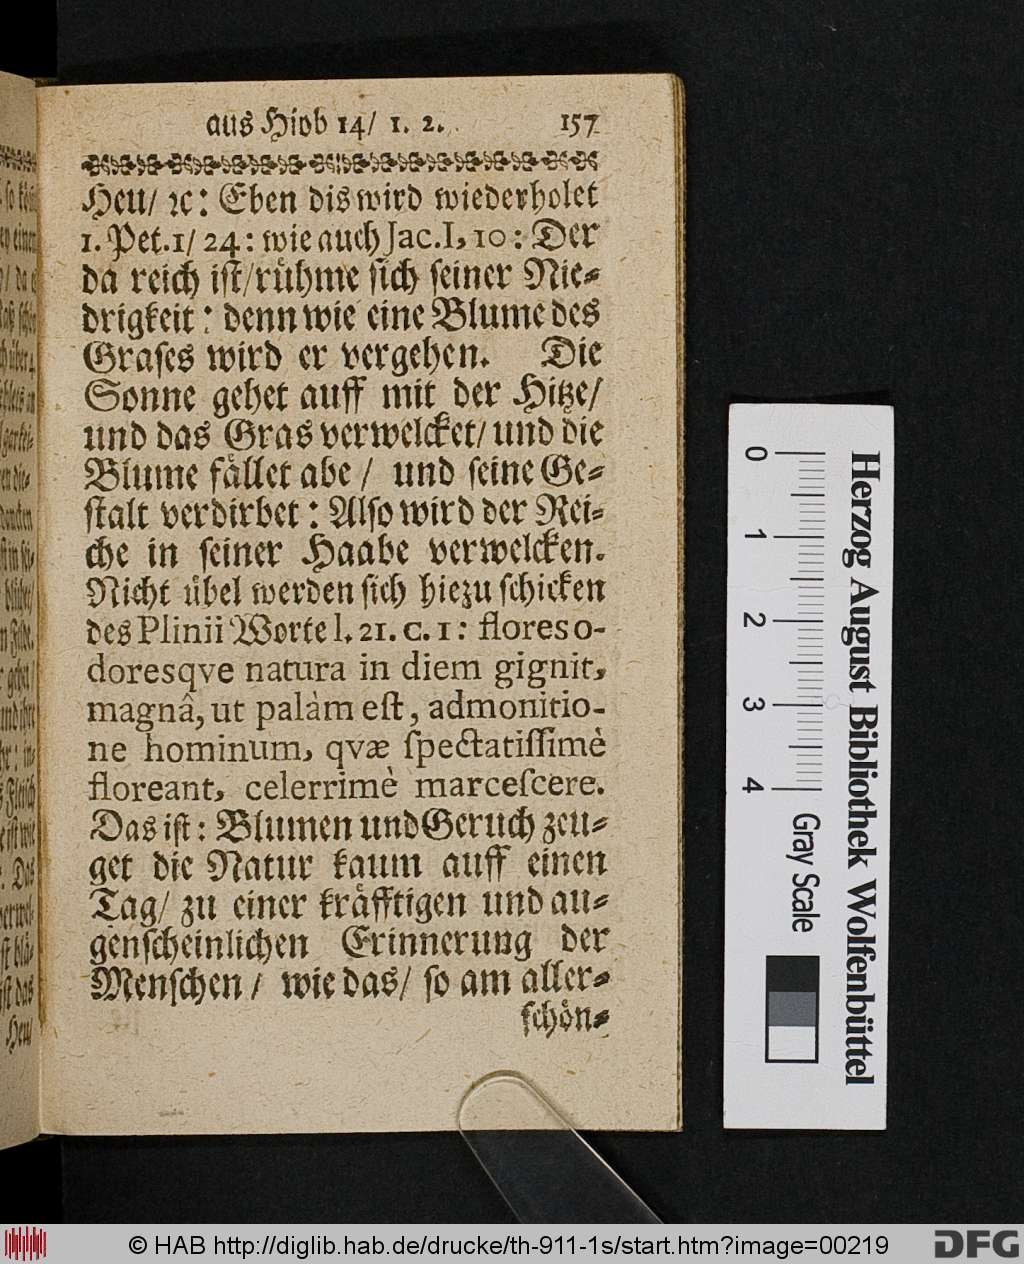 aus Hiob 14/ 1. 2. 157
Heu/ ꝛc: Eben dis wird wiederholet
1. Pet. 1/ 24: wie auch Jac. I, 10: Der
da reich ist/ rühme sich seiner Nie-
drigkeit: denn wie eine Blume des
Grases wird er vergehen. Die
Sonne gehet auff mit der Hitze/
und das Gras verwelcket/ und die
Blume fället abe/ und seine Ge-
stalt verdirbet: Also wird der Rei-
che in seiner Haabe verwelcken.
Nicht übel werden sich hiezu schicken
des Plinii Worte l. 21. c. 1: flores o-
doresqve natura in diem gignit,
magnâ, ut palàm eſt, admonitio-
ne hominum, qvæ ſpectatiſſimè
floreant, celerrimè marceſcere.
Das ist: Blumen und Geruch zeu-
get die Natur kaum auff einen
Tag/ zu einer kräfftigen und au-
genscheinlichen Erinnerung der
Menschen/ wie das/ so am aller-
schön-
Herzog August Bibliothek Wolfenbüttel
0 1 2 3 4
Gray Scale
© HAB http://diglib.hab.de/drucke/th-911-1s/start.htm?image=00219
DFG